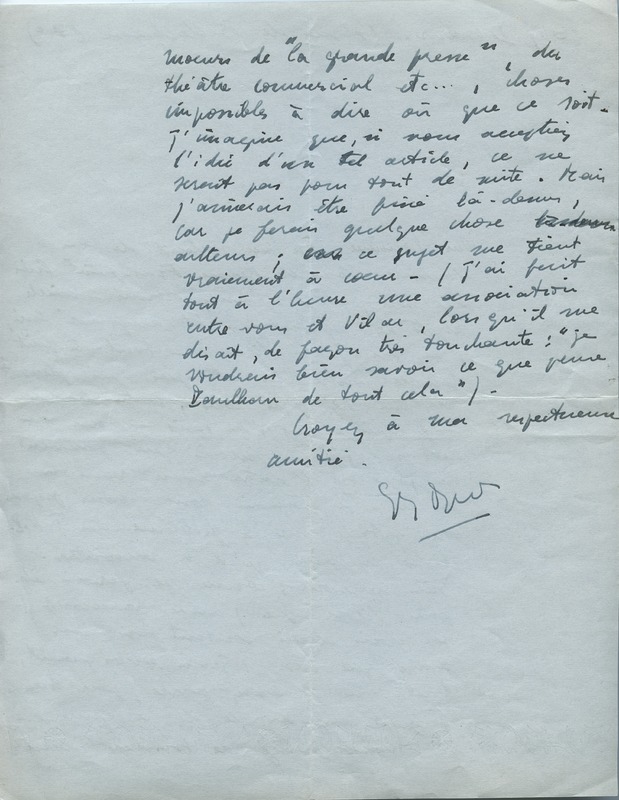 moeurs de "la grande presse", du
théâtre commercial etc..., choses
impossibles à dire où que ce soit.
J'imagine que, si vous acceptiez
l'idée d'un tel article, ce ne
serait pas pour tout de suite. Mais
j'aimerais être fixé là-dessus,
car je ferais quelque chose
ailleurs ; ce sujet me tient
vraiment à coeur - (J'ai fait
tout à l'heure une association
entre vous et Vilar, lorsqu'il me
disait, de façon très touchante : "je
voudrais bien savoir ce que pense
Paulhan de tout cela") -
Croyez à ma respectueuse
amitié.
Guy Dumur